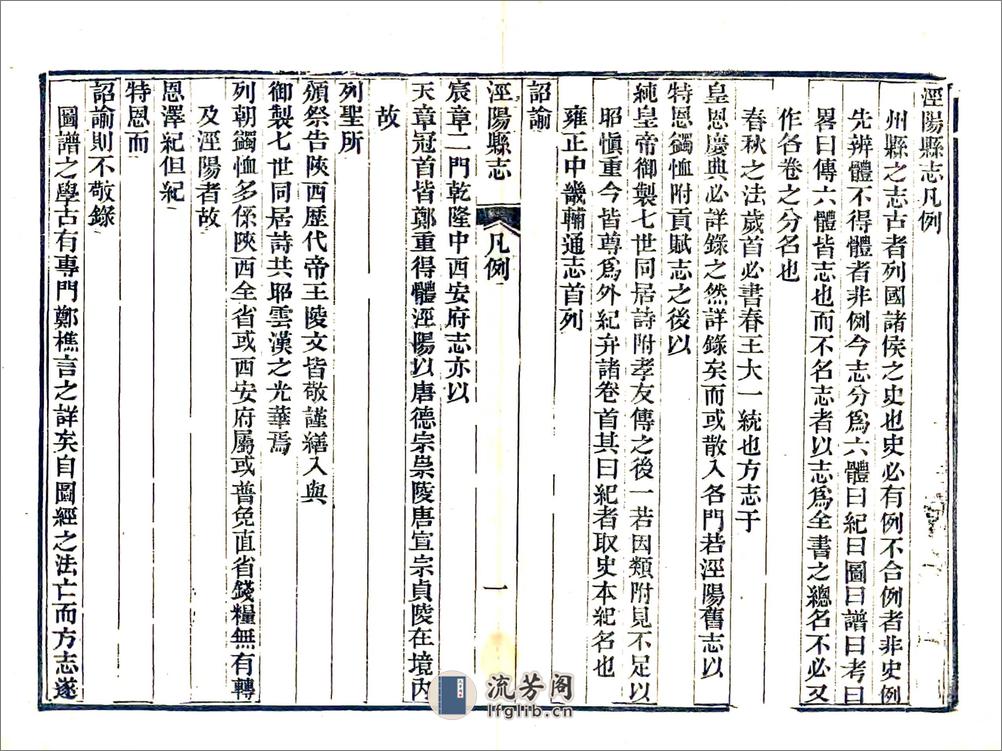 涇陽縣志凡例
州縣之志古者列國諸侯之史也史必有例不合例者非史例
先辨體不得體者非例今志分爲六體曰紀曰圖曰譜曰考曰
畧曰傳六體皆志也而不名志者以志爲全書之總名不必又
作各卷之分名也
春秋之法歲首必書春王大一統也方志于
皇恩慶典必詳錄之然詳錄矣而或散入各門若涇陽舊志以
特恩蠲恤附貢賦志之後以
純皇帝御製七世同居詩附孝友傳之後一若因類附見不足以
昭愼重今皆尊爲外紀弁諸卷首其曰紀者取史本紀名也
詔諭
雍正中畿輔通志首列
涇陽縣志
凡例
一
宸章二門乾隆中西安府志亦以
天章冠首皆鄭重得體涇陽以唐德宗崇陵唐宣宗貞陵在境內
故
列聖所
頒祭告陝西歷代帝王陵文皆敬謹繕入與
御製七世同居詩共昭雲漢之光華焉
列朝蠲恤多係陝西全省或西安府屬或普免直省錢糧無有轉
及涇陽者故
恩澤紀但紀
特恩而
詔諭則不敬錄
圖譜之學古有專門鄭樵言之詳矣自圖經之法亡而方志遂
流芳阁
lfglib.cn